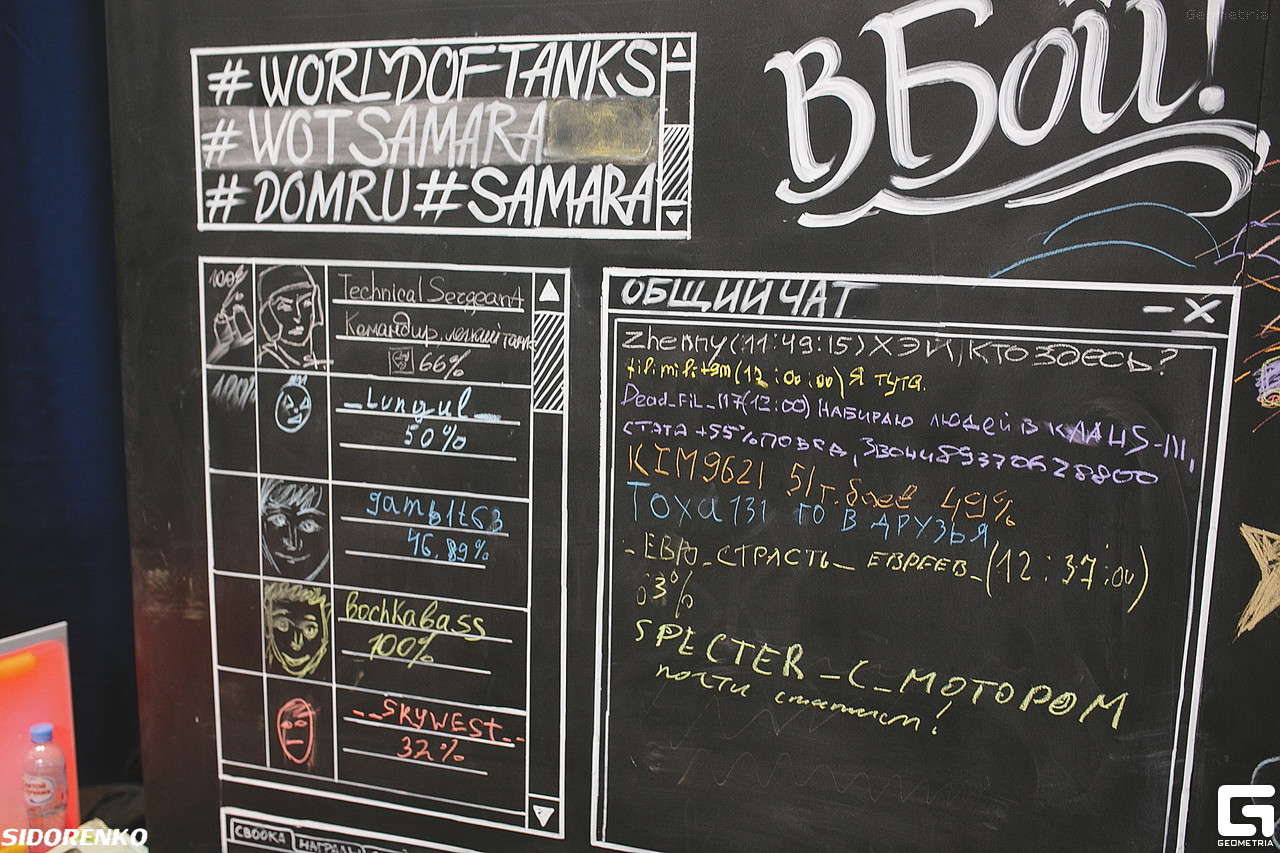 Geometria
В Бой!
#WORLDOFTANKS
#WOTSAMARA
#DOMRU#SAMARA
100%
Technical Sergeant
Командир. легкий танк
66%
100%
_Lungul_
50%
gambit63
46.89%
Bochkabass
100%
__SKYWEST__
32%
СВОДКА НАГРАДЫ
ОБЩИЙ ЧАТ
– X
Zhenny(11:49:15) ХЭЙ, КТО ЗДЕСЬ?
(12:00:00) Я ТУТА.
Dead_FiL_117(12:00) НАБИРАЮ ЛЮДЕЙ В
СТАТА +55% ПОБЕД, ЗВОНИ 89370628800
KIM9621 51 т. боев 49%
Тоха131 го В ДРУЗЬЯ
_ЕВРО_СТРАСТЬ_ЕВРЕЕВ_(12:37:00)
03%
SPECTER_С_МОТОРОМ
почти статист!
SIDORENKO
GEOMETRIA